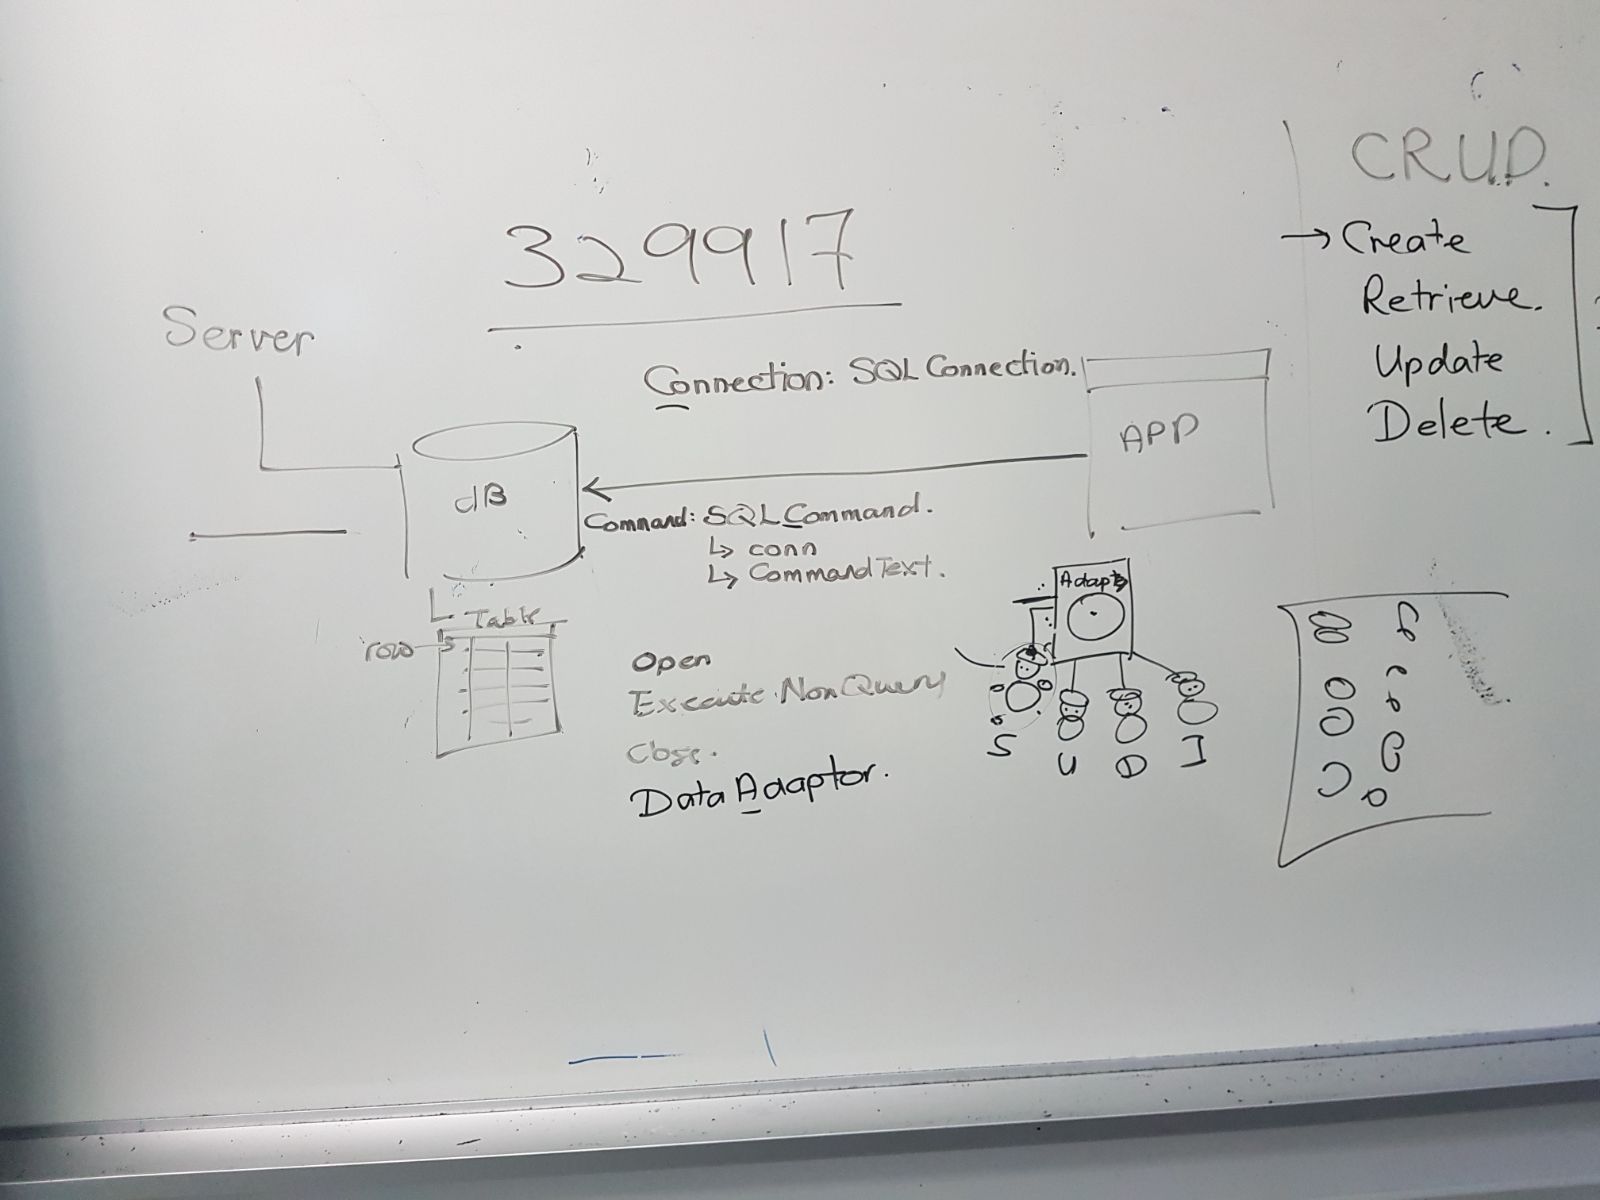 329917
Server
Connection: SQL Connection.
APP
dB
Command: SQL Command.
↳ conn
↳ CommandText.
Table
rows
Open
Execute NonQuery
Close.
Data Adaptor.
Adapt
S
U
D
I
CRUD.
→ Create
Retrieve.
Update
Delete.